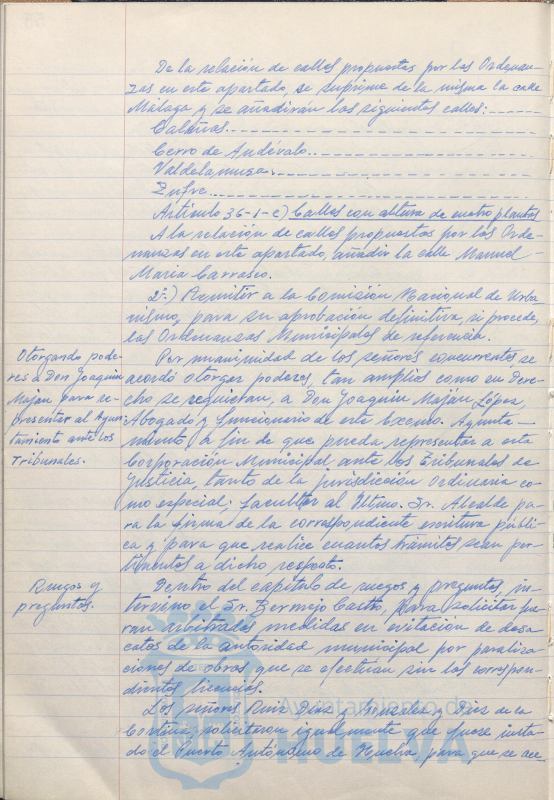 De la relación de calles propuestas por las Ordenan-
zas en este apartado, se suprime de la misma la calle
Málaga y se añadirán las siguientes calles:
Calañas.
Cerro de Andévalo.
Valdelamusa.
Zufre.
Artículo 36-1-c) Calles con altura de cuatro plantas
A la relación de calles propuestas por las Orde-
nanzas en este apartado, añadir la calle Manuel
María Carrasco.
2º.) Remitir a la Comisión Nacional de Urba-
nismo, para su aprobación definitiva, si procede,
las Ordenanzas Municipales de referencia.
Otorgando pode-
res a Don Joaquin
Maján para re-
presentar al Ayun-
tamiento ante los
Tribunales.
Por unanimidad de los señores concurrentes se
acordó otorgar poderes, tan amplios como en Dere-
cho se requieran, a Don Joaquin Maján López,
Abogado y funcionario de este Excmo. Ayunta-
miento, a fin de que pueda representar a esta
Corporación Municipal ante los Tribunales de
Justicia, tanto de la jurisdicción Ordinaria co-
mo especial; facultar al Iltmo. Sr. Alcalde pa-
ra la firma de la correspondiente escritura públi-
ca y para que realice cuantos trámites sean per-
tinentes a dicho respecto.
Ruegos y
preguntas.
Dentro del capítulo de ruegos y preguntas, in-
tervino el Sr. Bermejo Castro, para solicitar fue-
ran arbitradas medidas en evitación de desa-
catos de la autoridad municipal por paraliza-
ciones de obras que se efectúan sin las correspon-
dientes licencias.
Los señores Ruiz Díaz y González y Díez de la
Cortina, solicitaron igualmente que fuese insta-
do el Puerto Autónomo de Huelva para que se ace-
Ayuntamiento de
HUELVA